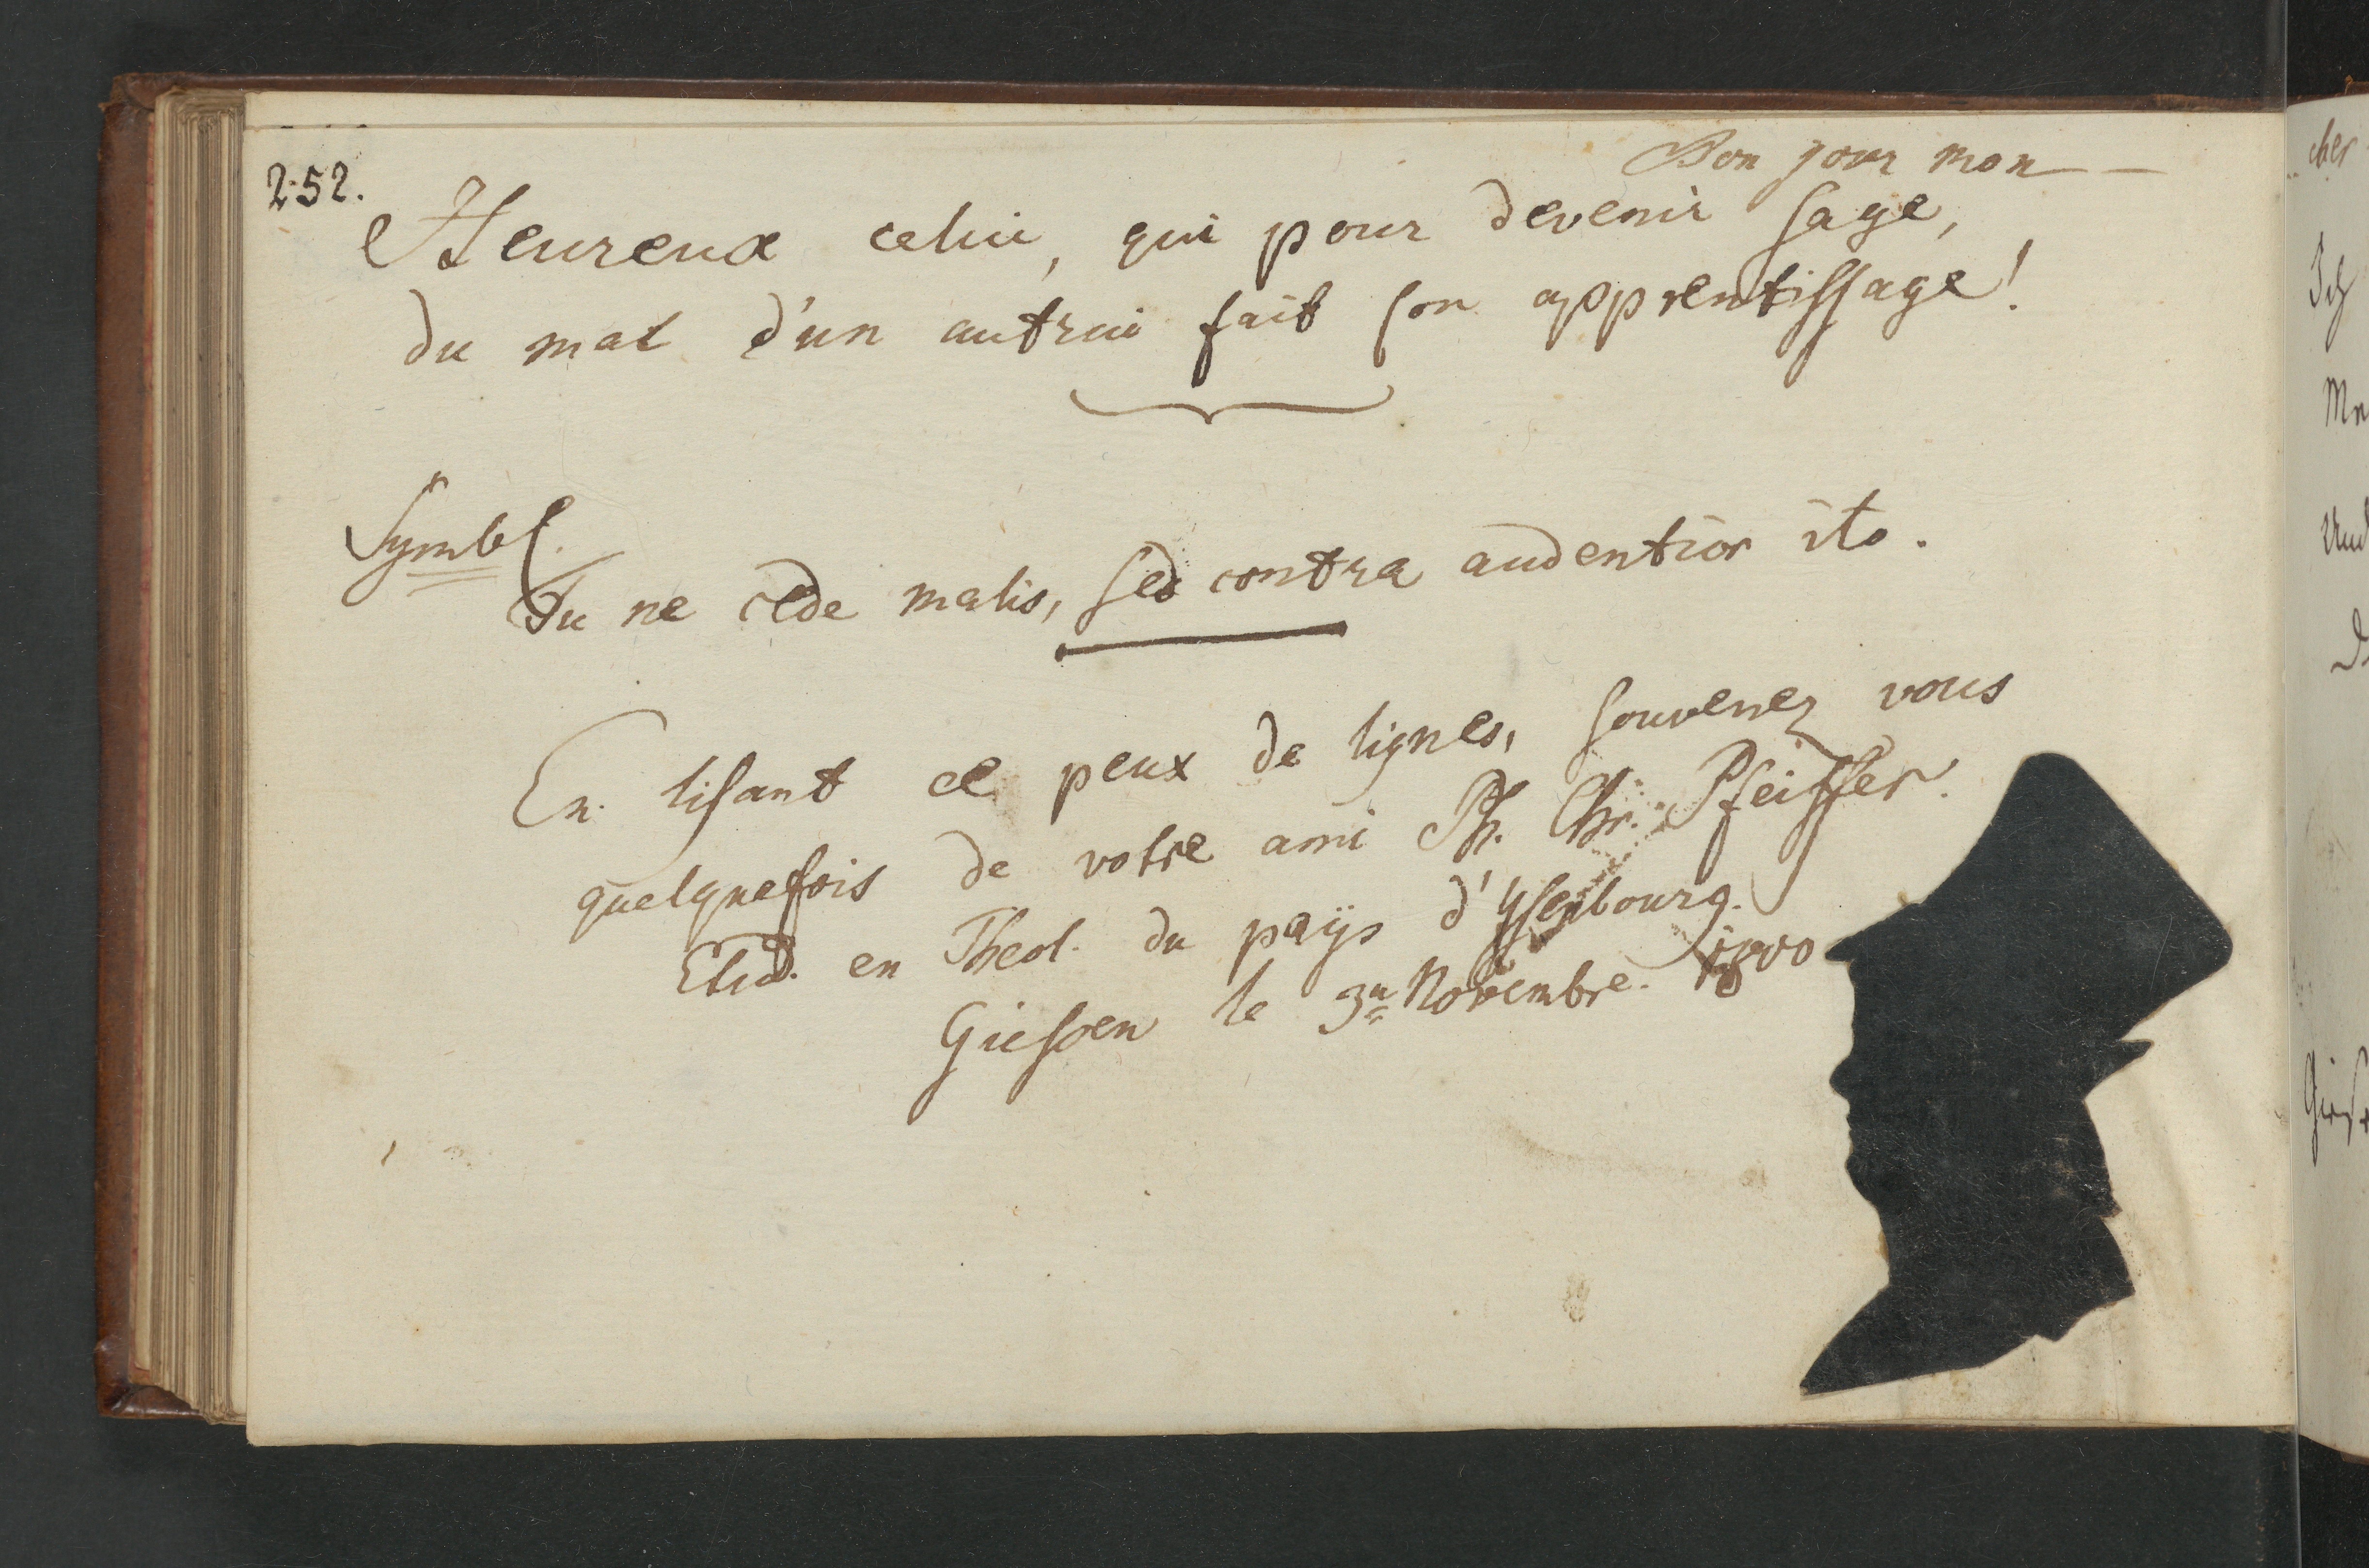 252.
Bon jour mon —
Heureux celui, qui pour devenir sage,
du mal d'un autrui fait son apprentissage!
Symbl.
Tu ne cede malis, sed contra audentior ito.
En lisant ce peux de lignes, souvenez vous
quelquefois de votre ami Ph. Chr. Pfeiffer.
Etud. en Theol. du paÿs d'Ysenbourg.
Giessen le 3u Novembre. 1800
cher
Ich
Und